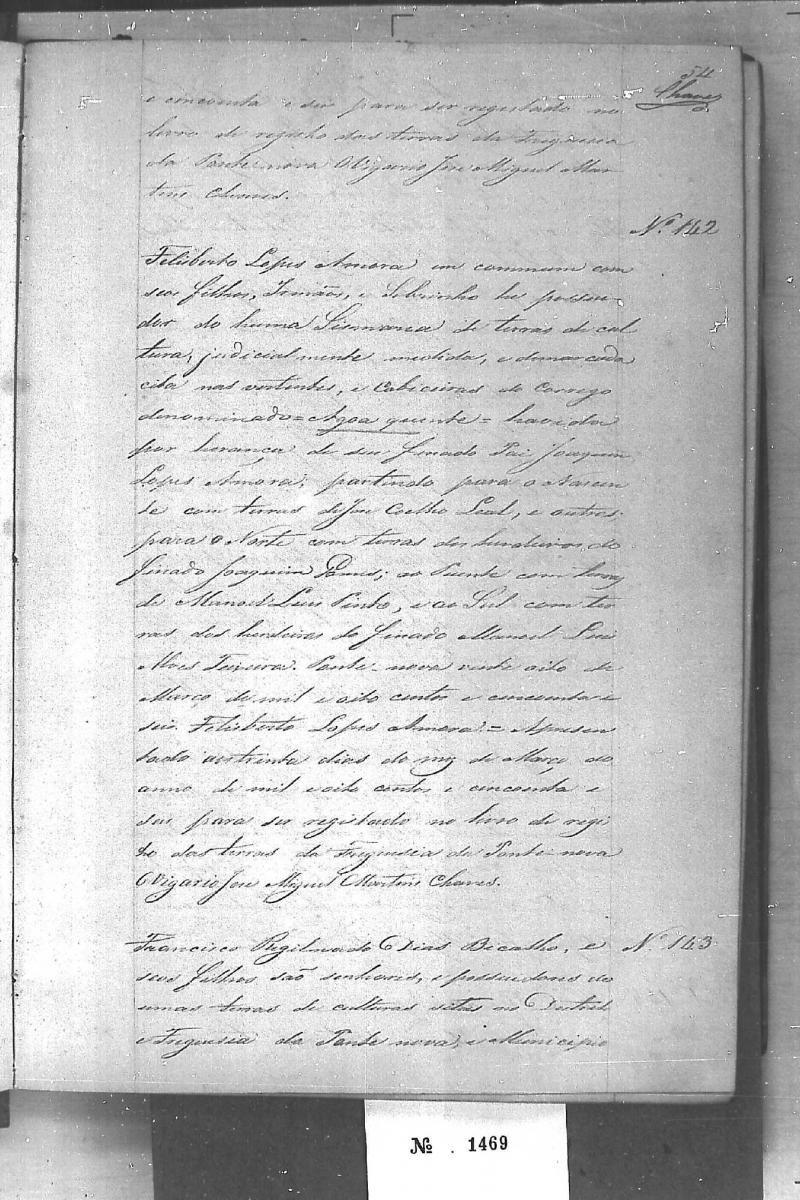 54
Chaves
e cincoenta e seis para ser registado no
livro de registo das terras da Freguesia
da Ponte nova O Vigario Jose Miguel Mar
tins Chaves.
Nº 142
Felisberto Lopes Amora em commum com
seos filhos, Irmãos, e Sobrinho he possui-
dor do huma Sismaria de terras de cul
tura, judicialmente medida, e demarcada
cita nas vertentes, e Cabiceiras do Corrego
denominado = Agoa quente = havida
por herança de seu finado Pai Joaquim
Lopes Amora; partindo para o Nascen
te com terras de Jose Coelho Leal, e outros,
para o Norte com terras dos herdeiros do
finado Joaquim Gomes; ao Puente com terras
de Manoel Luis Pinto, e ao Sul com ter
ras dos herdeiros do finado Manoel Luis
Alves Teixeira. Ponte-nova vinte oito de
Março de mil e oito centos e cincoenta e
seis. Felisberto Lopes Amora. = Apresen
tado aos trinta dias do mez de Março do
anno de mil e oito centos e cincoenta e
seis para ser registado no livro de regis
to das terras da Freguesia da Ponte-nova
O Vigario Jose Miguel Martins Chaves.
Francisco Dias Bicalho, e
Nº 143
seos filhos são senhores, e possuidores de
umas terras de culturas sitas no
e Freguesia da Ponte nova, e Municipio
Nº 1469